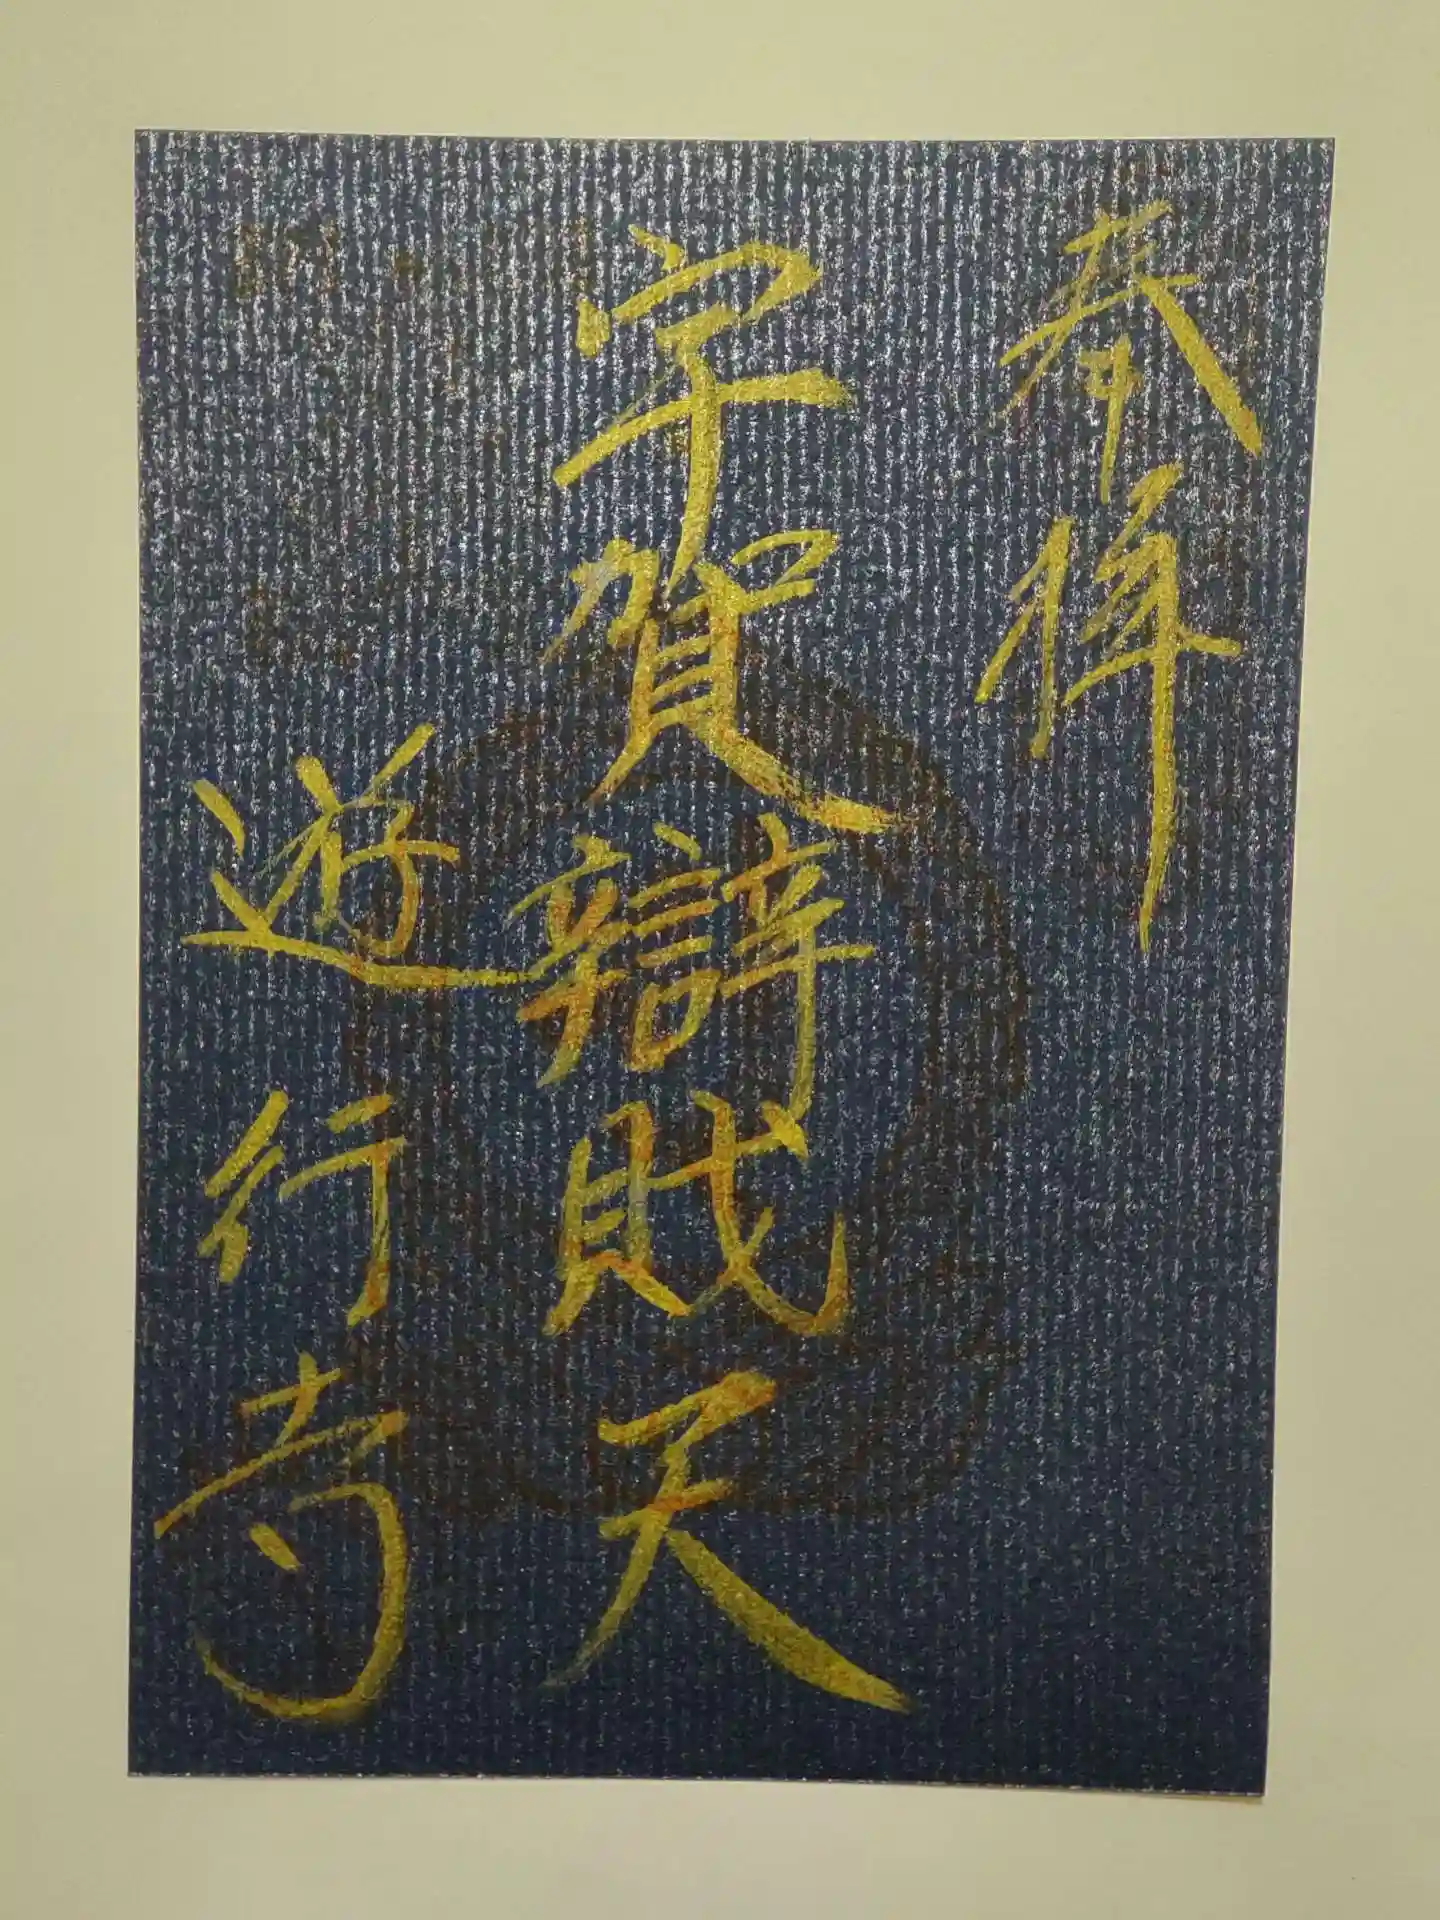 奉拝
宇賀辯財天
遊行寺